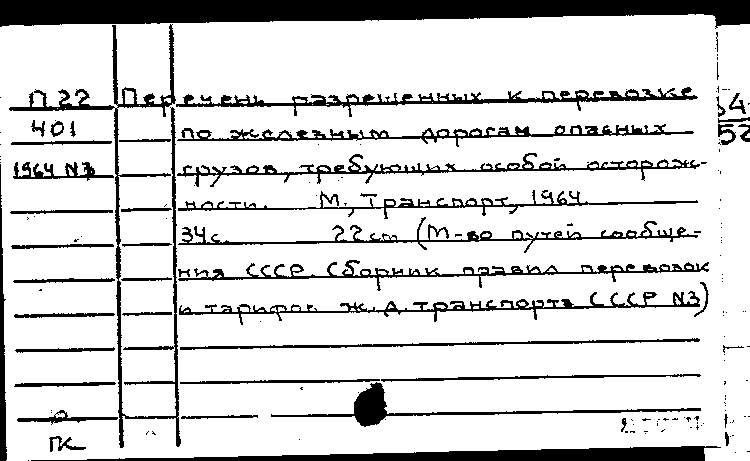 П 22 Перечень разрешенных к перевозке
401 по железным дорогам опасных
1964 N3 грузов, требующих особой осторож-
ности. М., Транспорт, 1964.
34с. 22cm (М-во путей сообще-
ния СССР. Сборник правил перевозок
и тарифов ж. д. транспорта СССР N3)
ПК
54
52